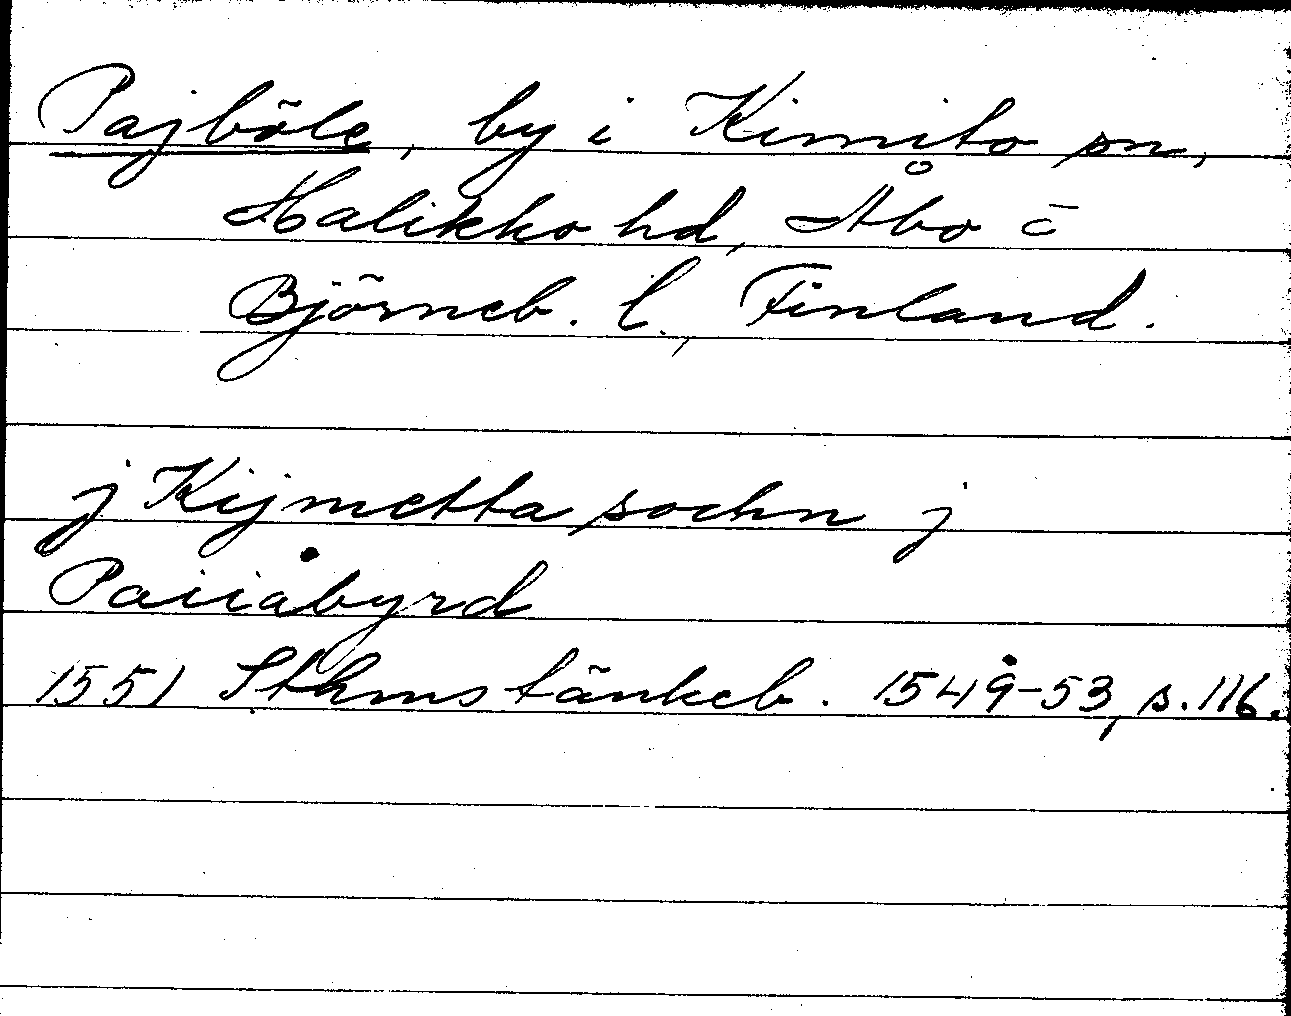 Pajböle, by i Kimito sn,
Halikko hd, Åbo o
Björneb. l., Finland.
j Kijmetta sochn j
Paiiabyrd
1551 Sthms tänkeb. 1549-53, s. 116.